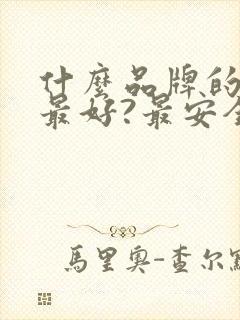 什麼品牌的
最好?最安全
馬里奧-查尔